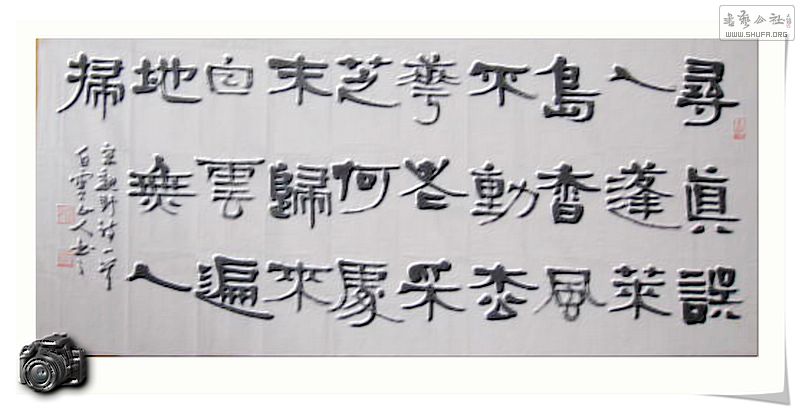 尋眞誤
入蓬萊
島香風
不動枩
華老采
芝何處
末歸來
白雲遍
地無人
掃
宋魏野詩一首
白雲山人书
書藝公社
WWW.SHUFA.ORG